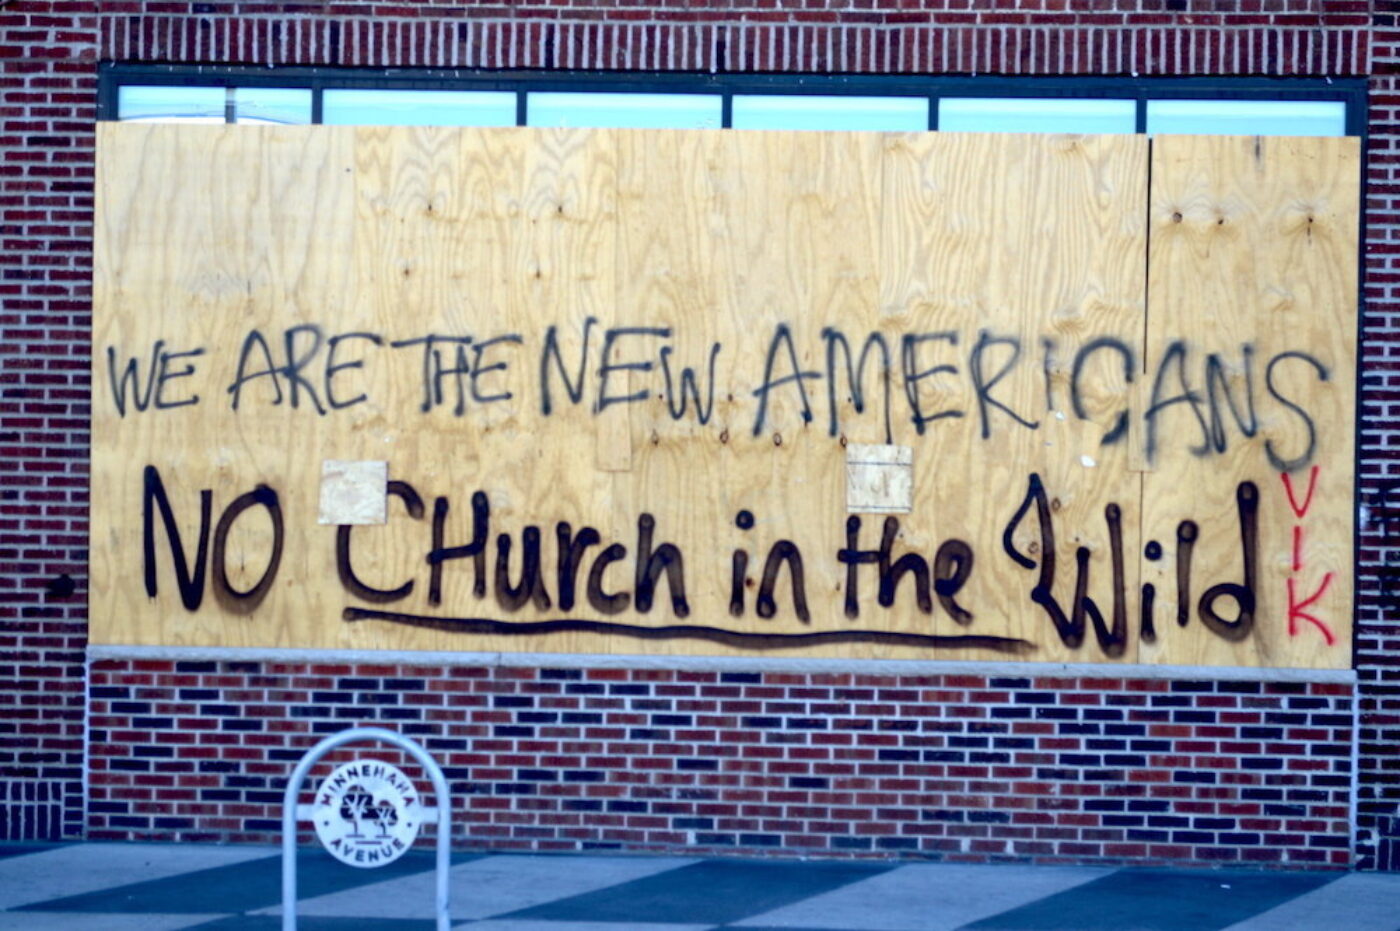 WE ARE THE NEW AMERICANS
NO CHurch in the Wild
VIK
MINNEHAHA
AVENUE